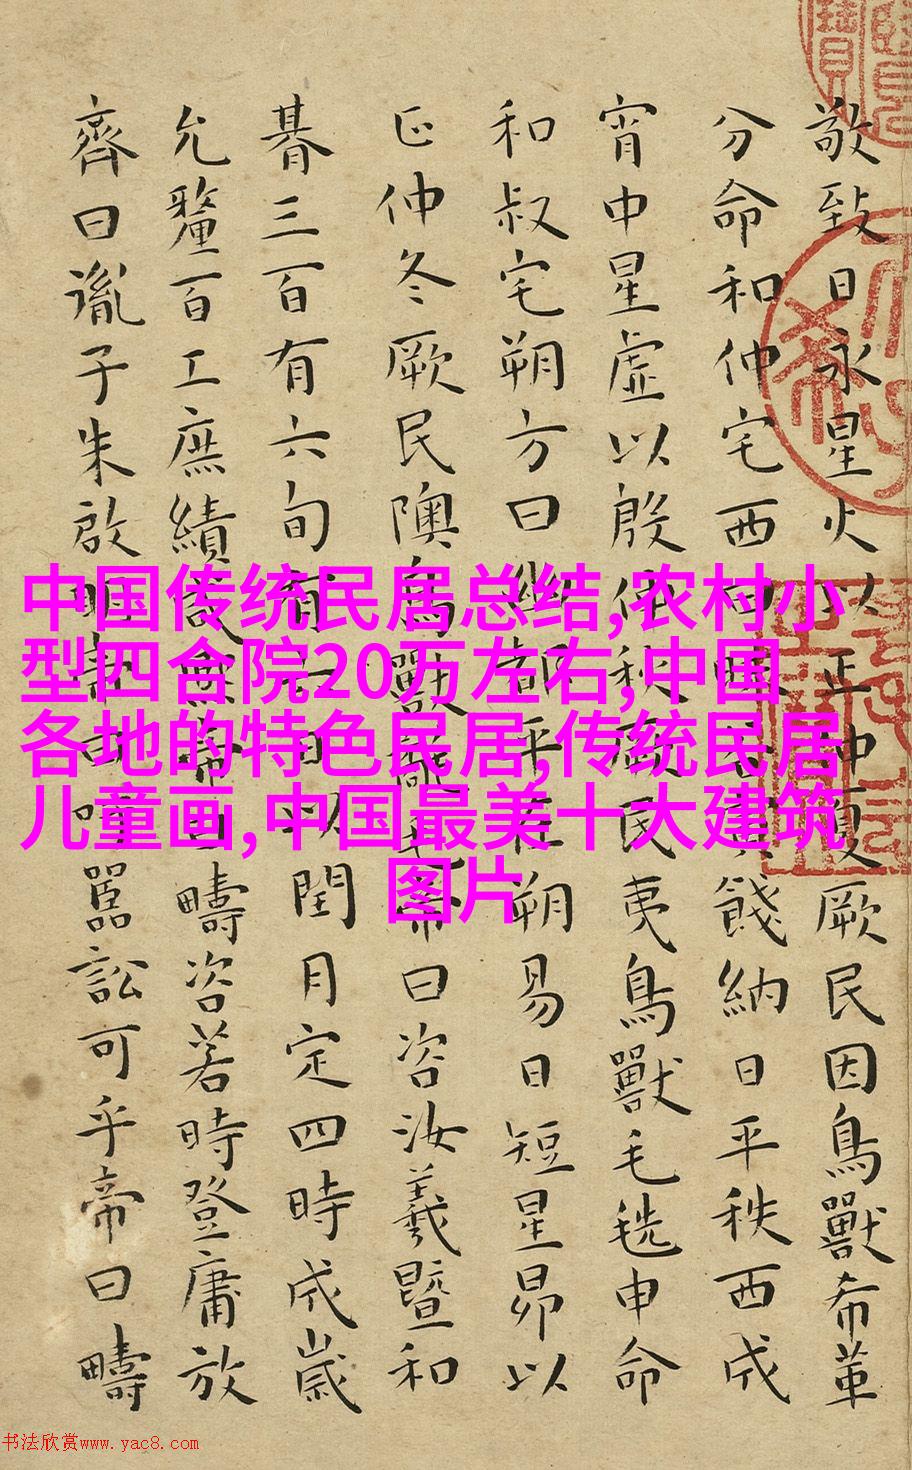 敬致日永星火以正仲夏厥民因鳥獸希革
分命和仲宅西曰昧谷寅餞納日平秩西成
宵中星虛以殷仲秋厥民夷鳥獸毛毨申命
和叔宅朔方曰幽都平在朔易日短星昴以
正仲冬厥民隩鳥獸氄毛帝曰咨汝羲暨和
朞三百有六旬有六日以閏月定四時成歲
允釐百工庶績咸熙帝曰疇咨若時登庸放
齊曰胤子朱啟明帝曰吁嚚訟可乎帝曰疇
中国传统民居总结,农村小
型四合院20万左右,中国
各地的特色民居,传统民居
儿童画,中国最美十大建筑
图片
书法欣赏www.yac8.com